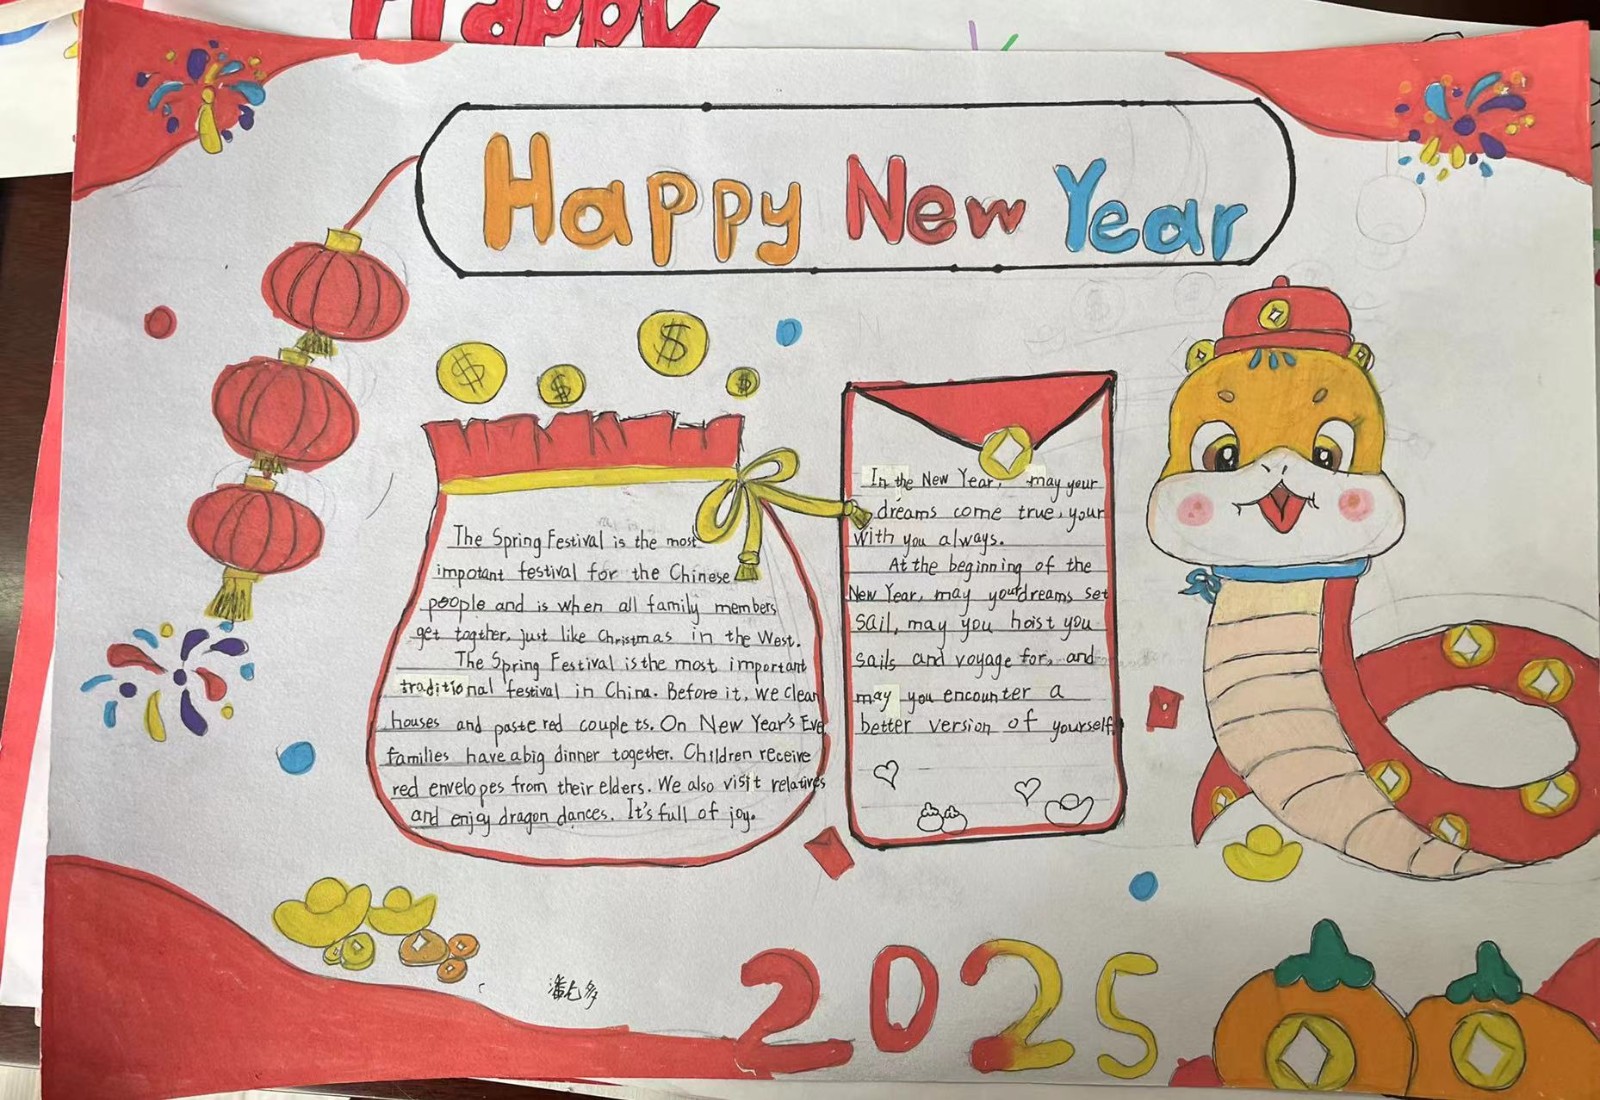 Happy
Happy New Year
The Spring Festival is the most
impotant festival for the Chinese
people and is when all family members
get togther, just like Christmas in the West.
The Spring Festival is the most important
traditional festival in China. Before it, we clean
houses and paste red couplets. On New Year's Eve
families have a big dinner together. Children receive
red envelopes from their elders. We also visit relatives
and enjoy dragon dances. It's full of joy.
In the New Year, may your
dreams come true, your
with you always.
At the beginning of the
New Year, may your dreams set
sail, may you hoist you
sails and voyage for, and
may you encounter a
better version of yourself
2025